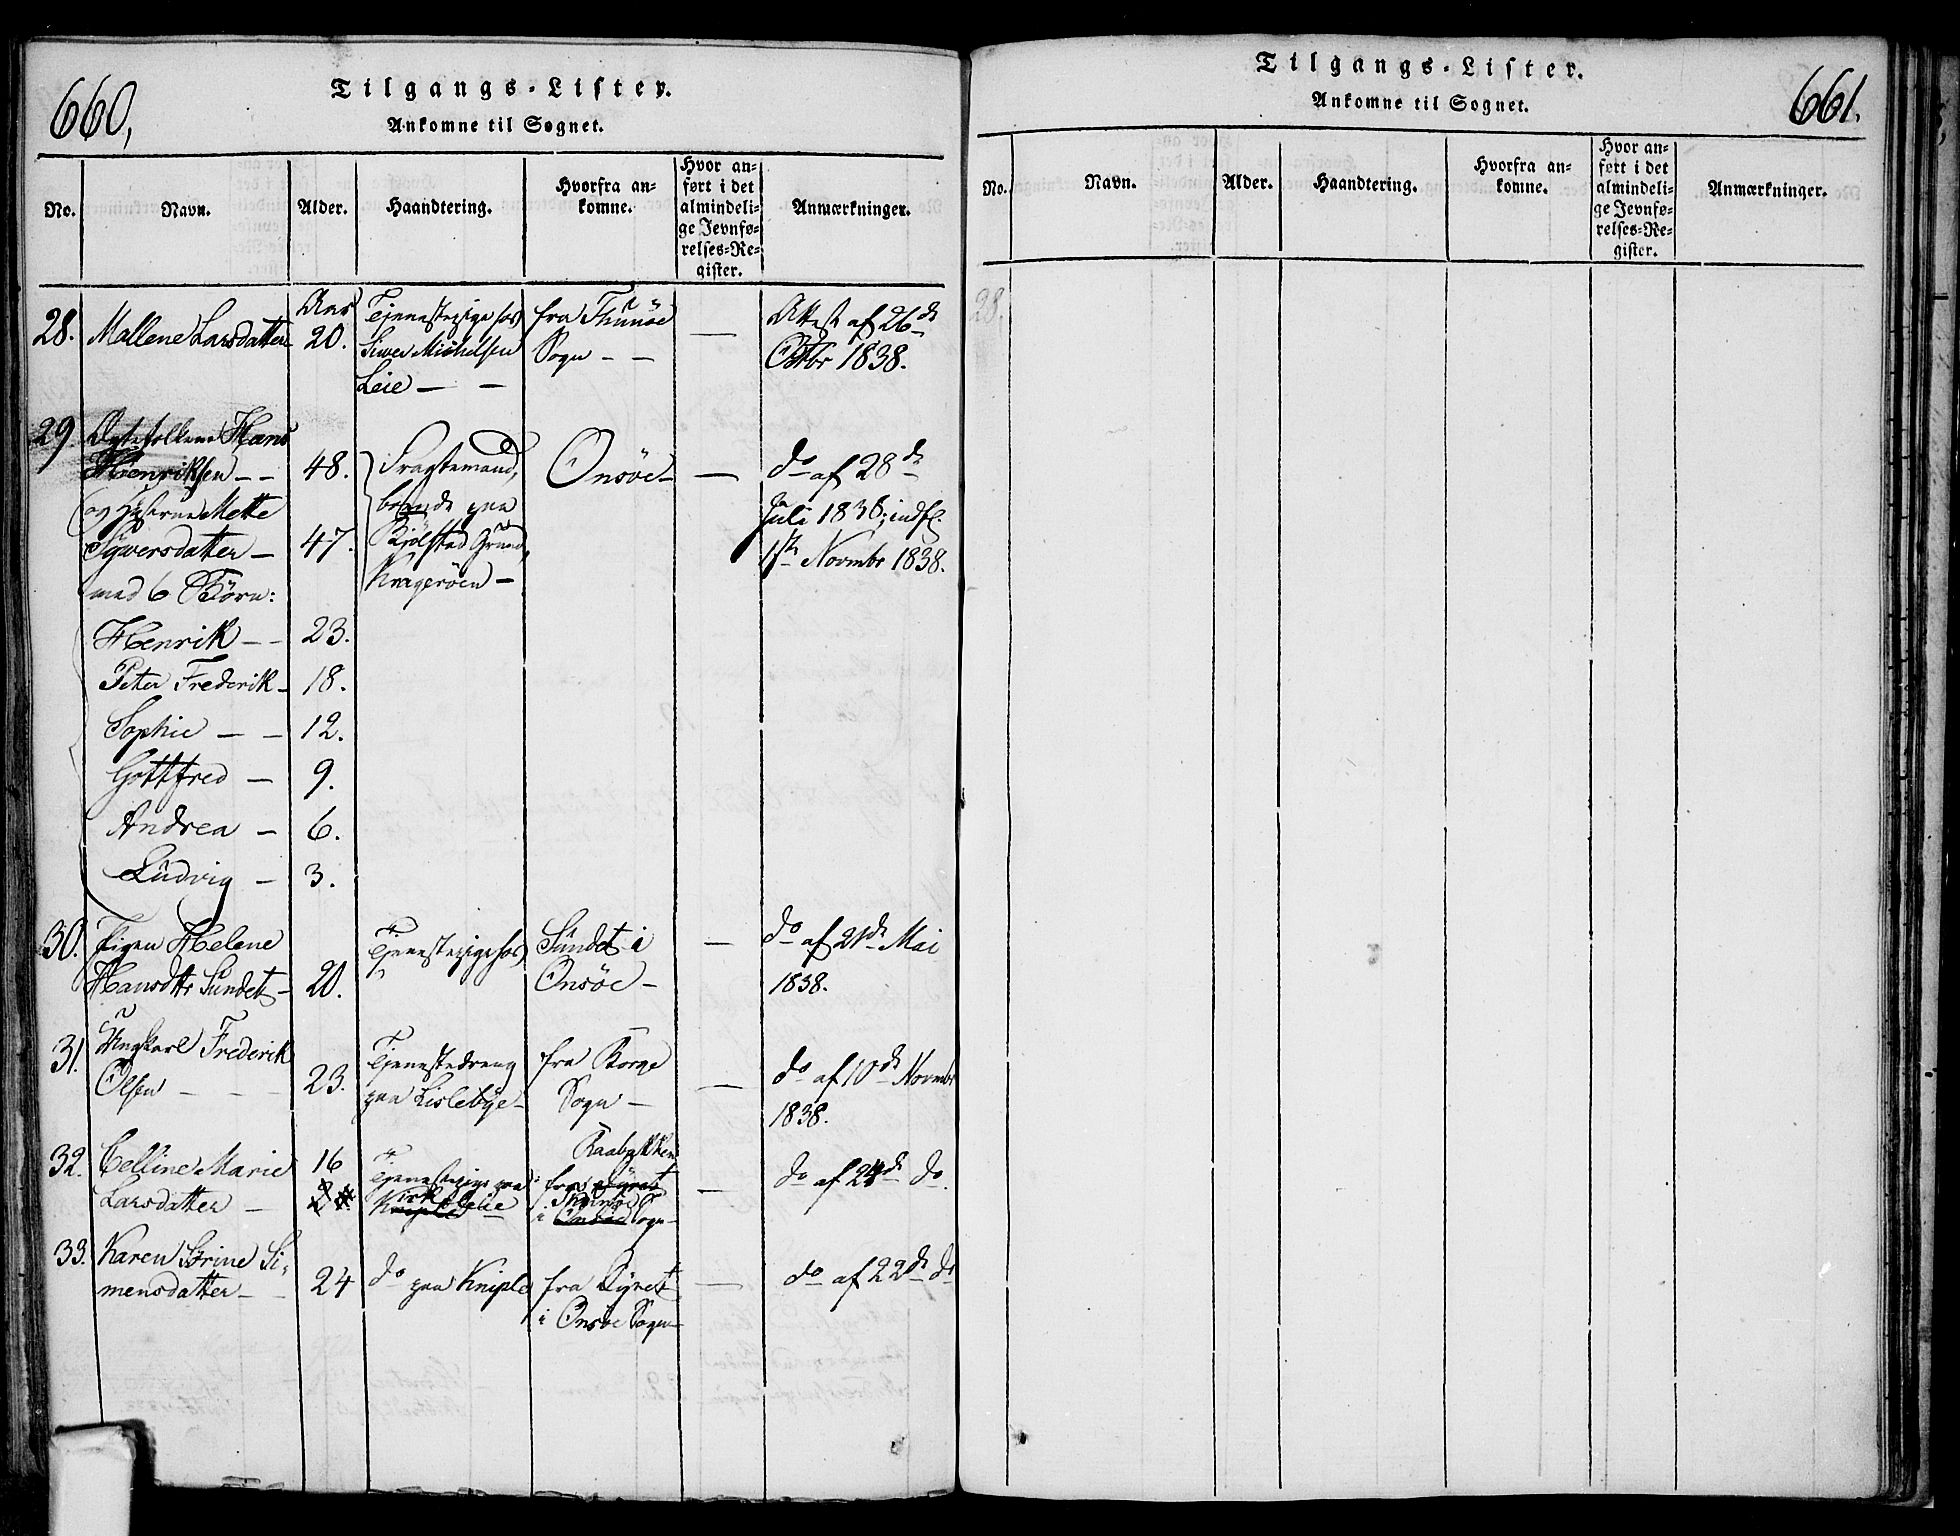 660,
Tilgangs-Lister.
Ankomne til Sognet.
No.
Navn.
Alder.
Haandtering.
Hvorfra an-
komne.
Hvor an-
ført i det
almindeli-
ge Jevnfø-
relses-Re-
gister.
Anmærkninger.
28. Mallene Larsdatter
Aar
20.
Tjenestepige hos
Siwer Michelsen
Leie — —
fra Thunöe
Sogn — —
—
Attest af 26de
Octbr 1838.
29. Ægtefolkene Hans
Henriksen — —
og Hustrue Mette
Sywersdatter —
med 6 Börn:
48.
47.
Fragtemand,
boende paa
Kjölstad Grund,
Krageröen —
Onsöe —
—
do af 28de
Juli 1838; indfl.
1ste Novmbr 1838.
Henrik — — 23.
Peter Frederik — 18.
Sophie — — 12.
Gottfred — 9.
Andrea — 6.
Ludvig — 3.
30. Pigen Helene
Hansdtr Sundet — 20.
Tjenestepige hos
Sundet i
Onsöe —
—
do af 21de Mai
1838.
31. Ungkarl Frederik
Olsen — — — 23.
Tjenestedreng
paa Lislebye —
fra Borge
Sogn —
—
do af 10de Novmbr
1838.
32. Celline Marie
Larsdatter —
16
Tjenestepige paa
Kirk Leie
fra Dyret
i Onsöe Sogn —
—
do af 24de do.
33. Karen Sörine Si-
mensdatter — — 24
do paa Kniple
fra Dyret
i Onsöe Sogn —
—
do af 22de do
Tilgangs-Lister.
Ankomne til Sognet.
661.
No.
Navn.
Alder.
Haandtering.
Hvorfra an-
komne.
Hvor an-
ført i det
almindeli-
ge Jevnfø-
relses-Re-
gister.
Anmærkninger.